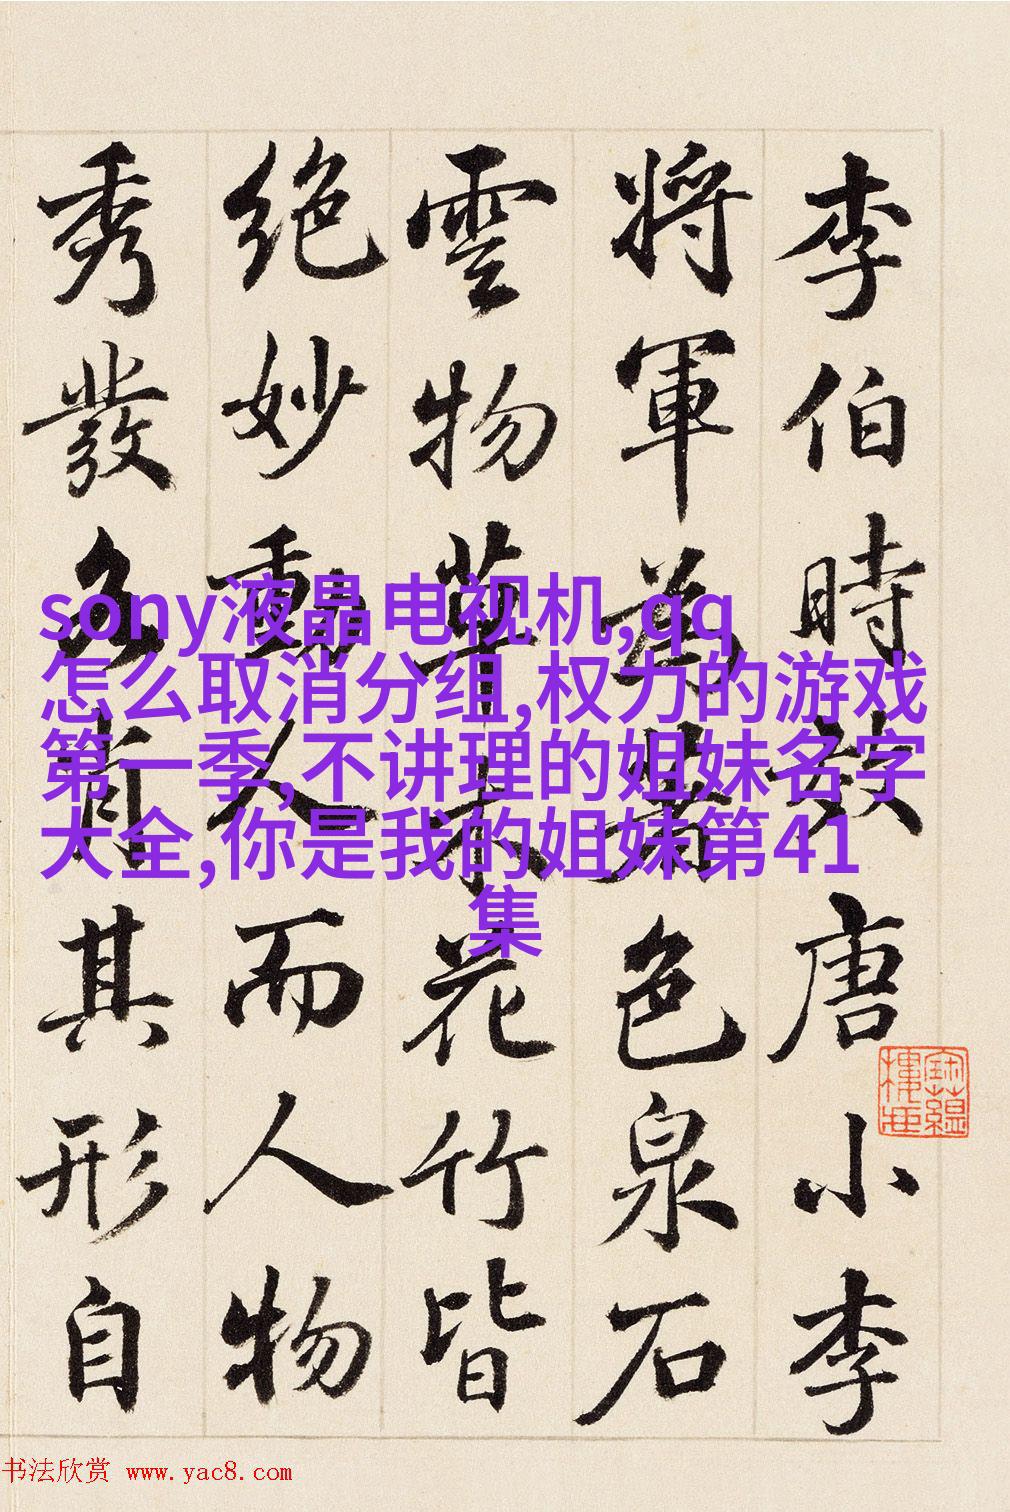 李伯時效唐小李
將軍為著色泉石
雲物草木花竹皆
絕妙動人而人物
秀發各肖其形自
sony液晶电视机,qq
怎么取消分组,权力的游戏
第一季,不讲理的姐妹名字
大全,你是我的姐妹第41
集
书法欣赏 www.yac8.com